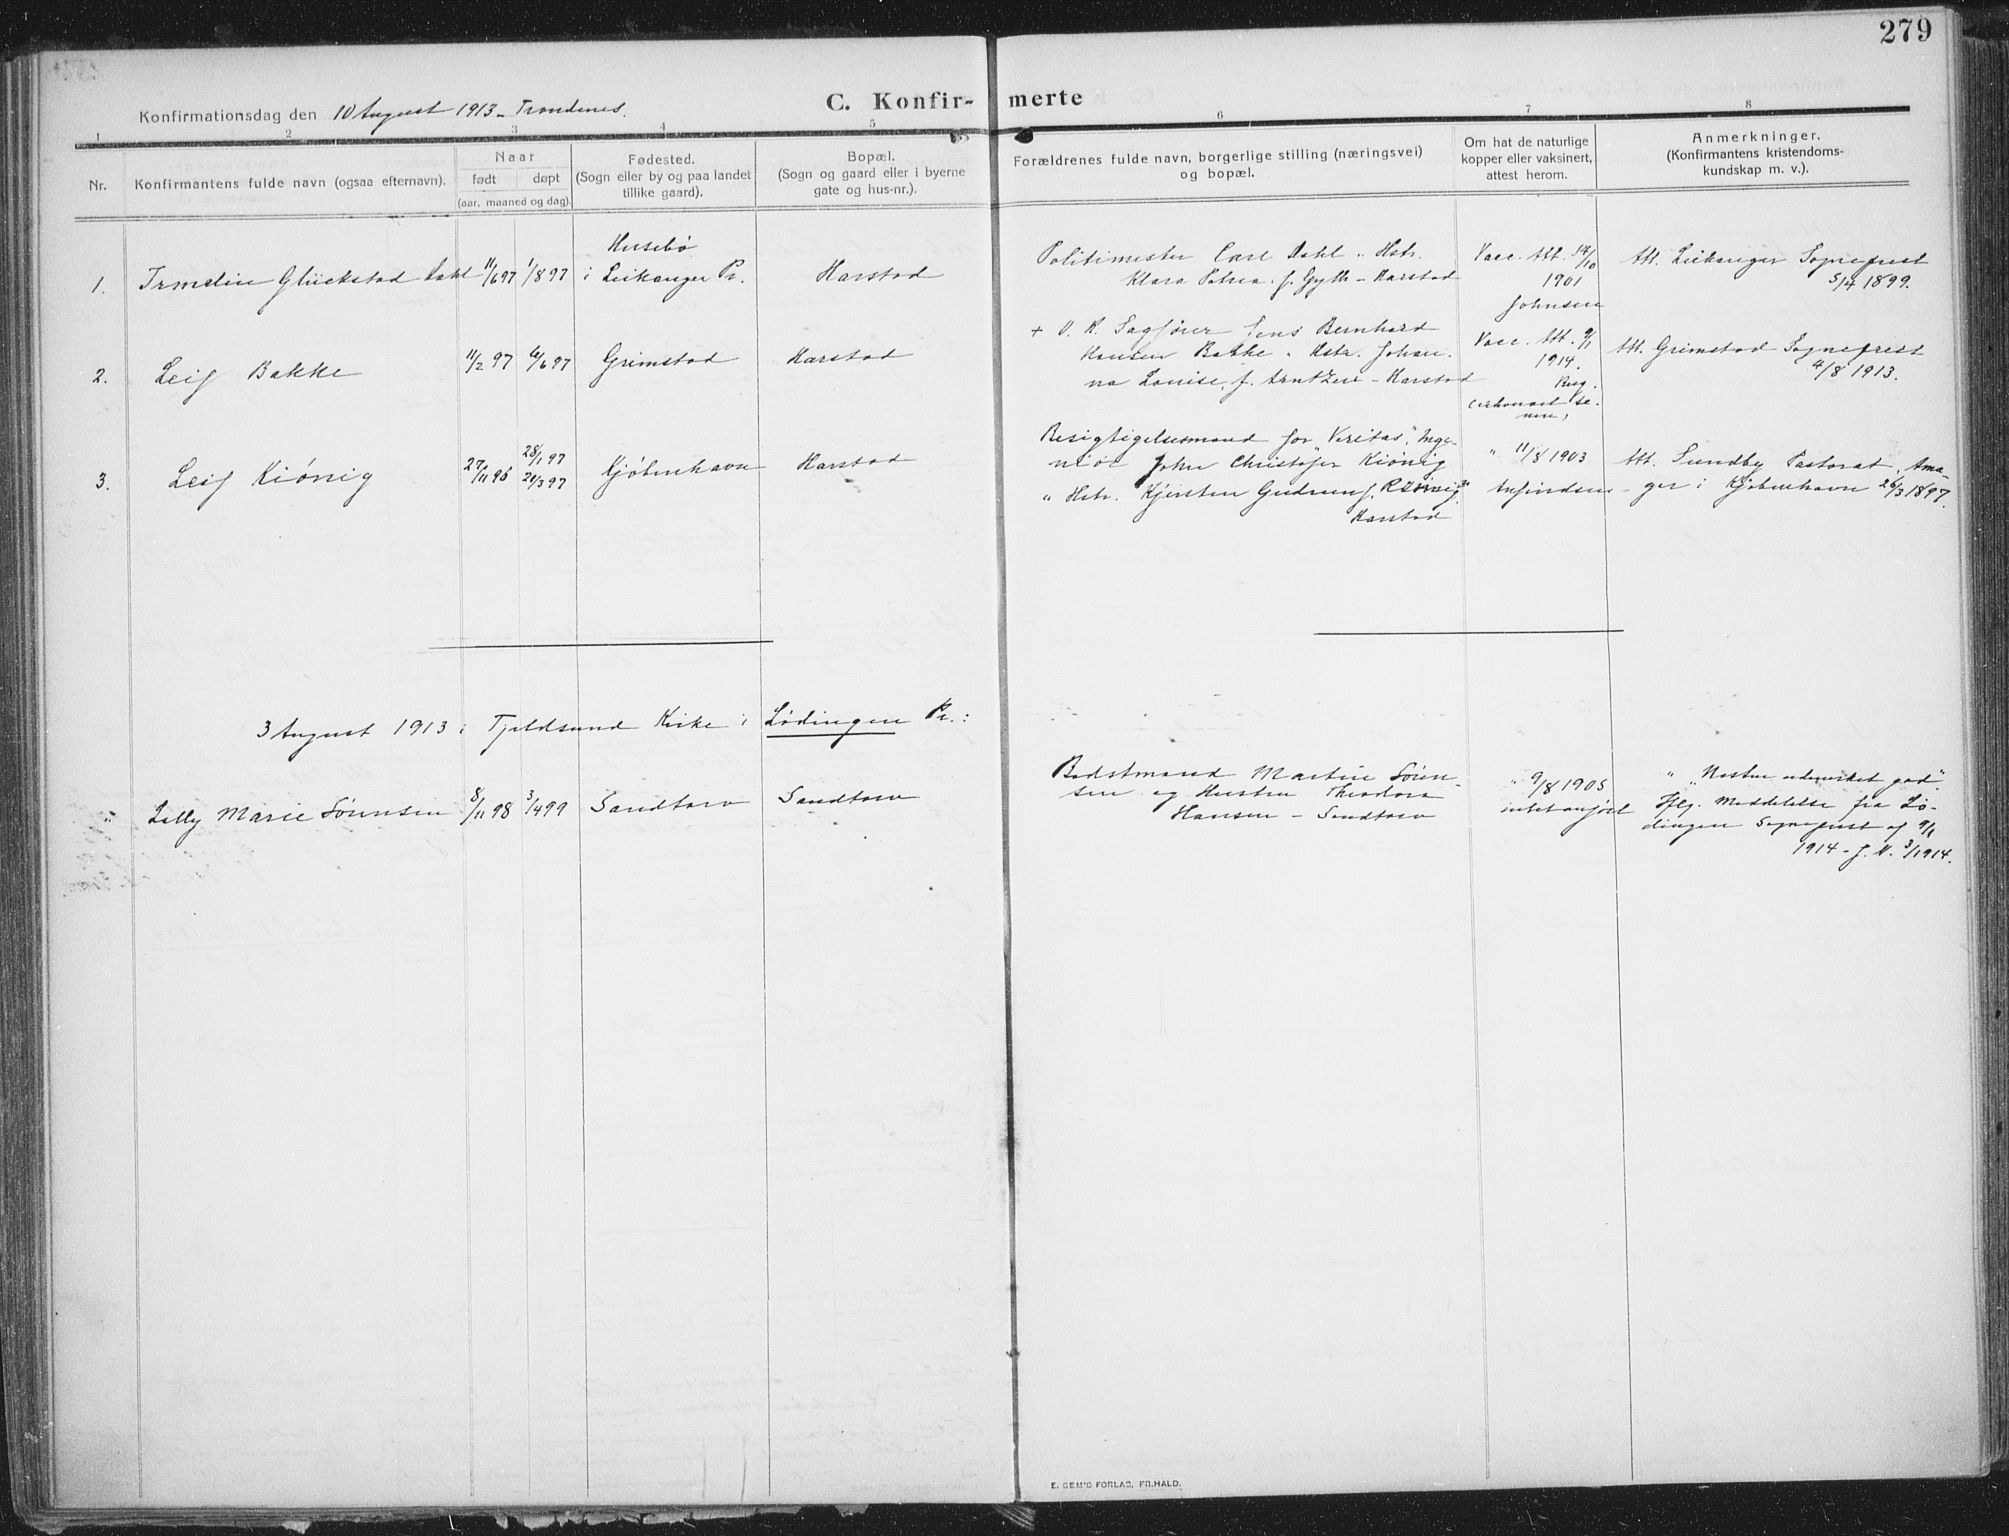 279
Konfirmationsdag den 10 August 1913 - Trondenes.
C. Konfir- merte
1 2 3 4 5 6 7 8
Nr.
Konfirmantens fulde navn (ogsaa efternavn).
Naar
født døpt
(aar, maaned og dag).
Fødested.
(Sogn eller by og paa landet
tillike gaard).
Bopæl.
(Sogn og gaard eller i byerne
gate og hus-nr.).
Forældrenes fulde navn, borgerlige stilling (næringsvei)
og bopæl.
Om hat de naturlige
kopper eller vaksinert,
attest herom.
Anmerkninger.
(Konfirmantens kristendoms-
kundskap m. v.).
Husebø
1. Irmelin Glückstad Dahl 11/6 97 1/8 97 i Leikanger Pr. Harstad
Politimester Carl Dahl " Hstr.
Klara Petrea f. Gyth - Harstad
Vacc. Att. 14/10
1901
Johnsen
Att. Leikanger Sogneprest
5/4 1899.
2. Leif Bakke 11/2 97 6/6 97 Grimstad Harstad
+ O. R. Sagfører Jens Bernhard
Hansen Bakke " Hstr. Johan-
na Louise, f. Arntzen - Harstad
Vacc. Att. 9/1
1914.
Att. Grimstad Sogneprest
4/8 1913.
3. Leif Kiønig 27/11 96 28/1 97 21/3 97 Kjøbenhavn Harstad
Besigtigelsesmand for "Veritas", Inge-
niør John Christofer Kiønig
" Hstr. Kjersten Gudrun f.
Harstad
" 11/8 1903
Anfindsen
Att. Sundby Pastorat, Ama-
ger i Kjøbenhavn 26/3 1897.
3 August 1913 i Tjeldsund Kirke i Lødingen Pr.:
" Lally Marie Sørensen 8/11 98 3/4 99 Sandtorv Sandtorv
Baadsmand Martin Søren-
sen og Hustru Theodora
Hansen - Sandtorv
" 9/8 1905
intet anført
" "Næsten udmerket god".
Iflg. Meddelelse fra Lø-
dingen Sogneprest af 9/1
1914 - J. N. 3/1914.
E. SEM'S FORLAG, FR.HALD.